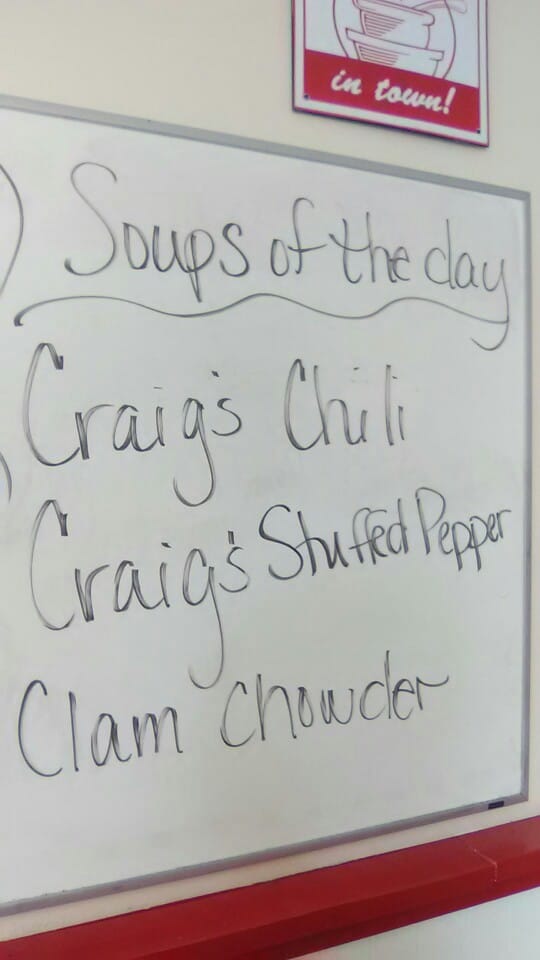 in town!
Soups of the day
Craig's Chili
Craig's Stuffed Pepper
Clam Chowder